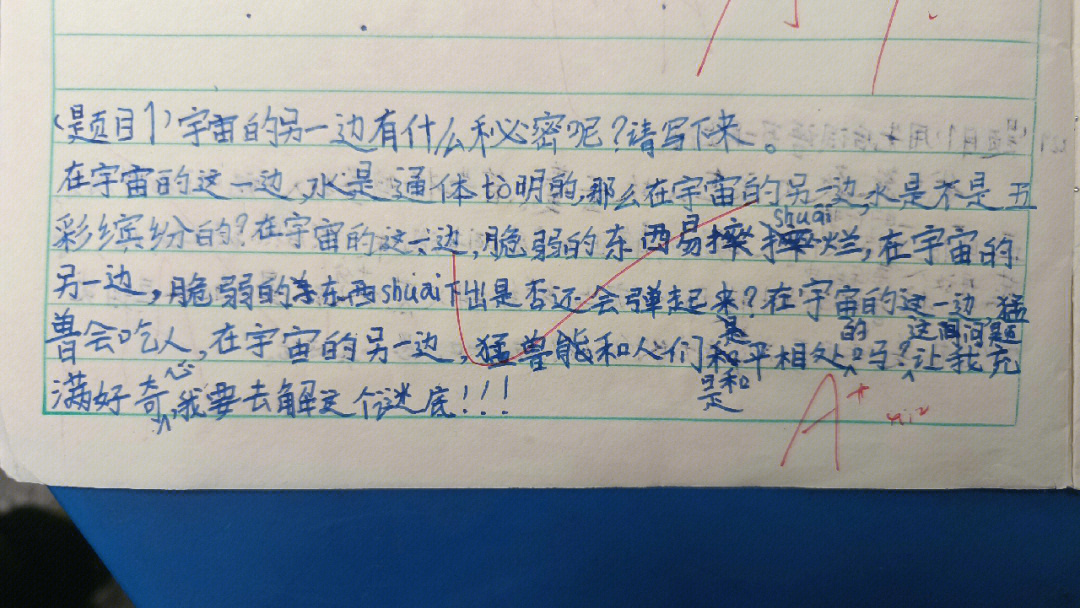 (题目1)宇宙的另一边有什么秘密呢?请写下来。
在宇宙的这一边,水是通体透明的,那么在宇宙的另一边,水是不是五
彩缤纷的?在宇宙的这一边,脆弱的东西易shuai烂,在宇宙的
另一边,脆弱的东西shuai下出是否还会弹起来?在宇宙的这一边,猛
兽会吃人,在宇宙的另一边,猛兽能和人们是和平相处的吗?这问题让我充
满好奇心,我要去解这个谜底!!!
A+